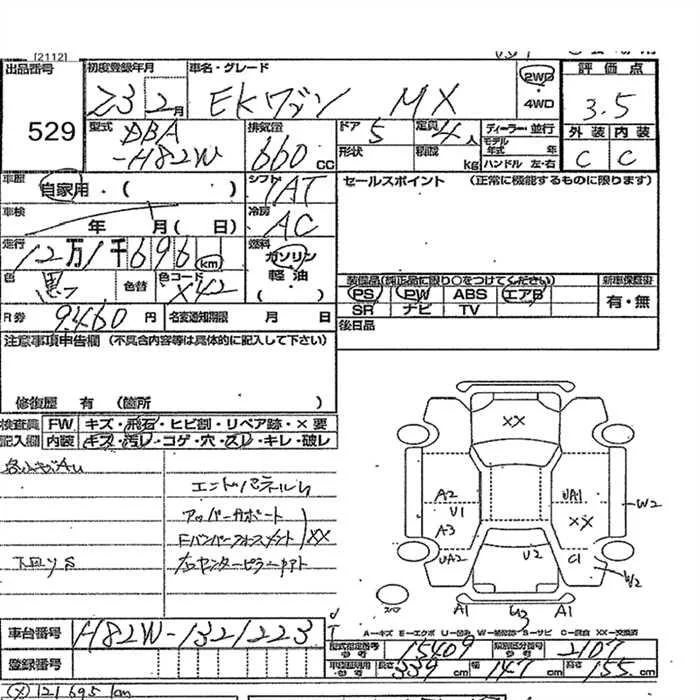 [2112]
出品番号 初度登録年月 車名・グレード 評価点
529 23 2月 EKワゴン MX 2WD・4WD 3.5
型式 DBA-H82W 排気量 660 CC ドア 5 定員 4人 ディーラー・並行 外装 内装
形状 積載 kg モデル年式 年 ハンドル 左・右 C C
車歴 自家用・( ) シフト AT セールスポイント (正常に機能するものに限ります)
車検 年 月( 日) 冷房 AC
走行 12万1千696 km 燃料 ガソリン 軽油 ( )
色 黒 色替 色コード X42
装備品(純正品に限り○をつけてください) 新車保証書
PS PW ABS エアB 有・無
SR ナビ TV
R券 9460 円 名変通知期限 月 日 後日品
注意事項申告欄 (不具合内容等は具体的に記入して下さい)
修復歴 有 (箇所 )
検査員 FW キズ・飛石・ヒビ割・リペア跡・×要
記入欄 内装 キズ・汚レ・コゲ・穴・スレ・キレ・破レ
エンドパネル
アッパーサポート
XX
下回りS
XX
A2 U1 A3 UA2
UA1 XX C1
W2
U2 W2
A1 A1
A-キズ E-エクボ U-凹み W-補修跡 S-サビ C-腐食 XX-交換済
車台番号 H82W-1321223
型式指定番号 参考 15409 類別区分番号 参考 2107
登録番号
長さ 339 cm 幅 147 cm 高さ 155 cm
(X) 121695 km